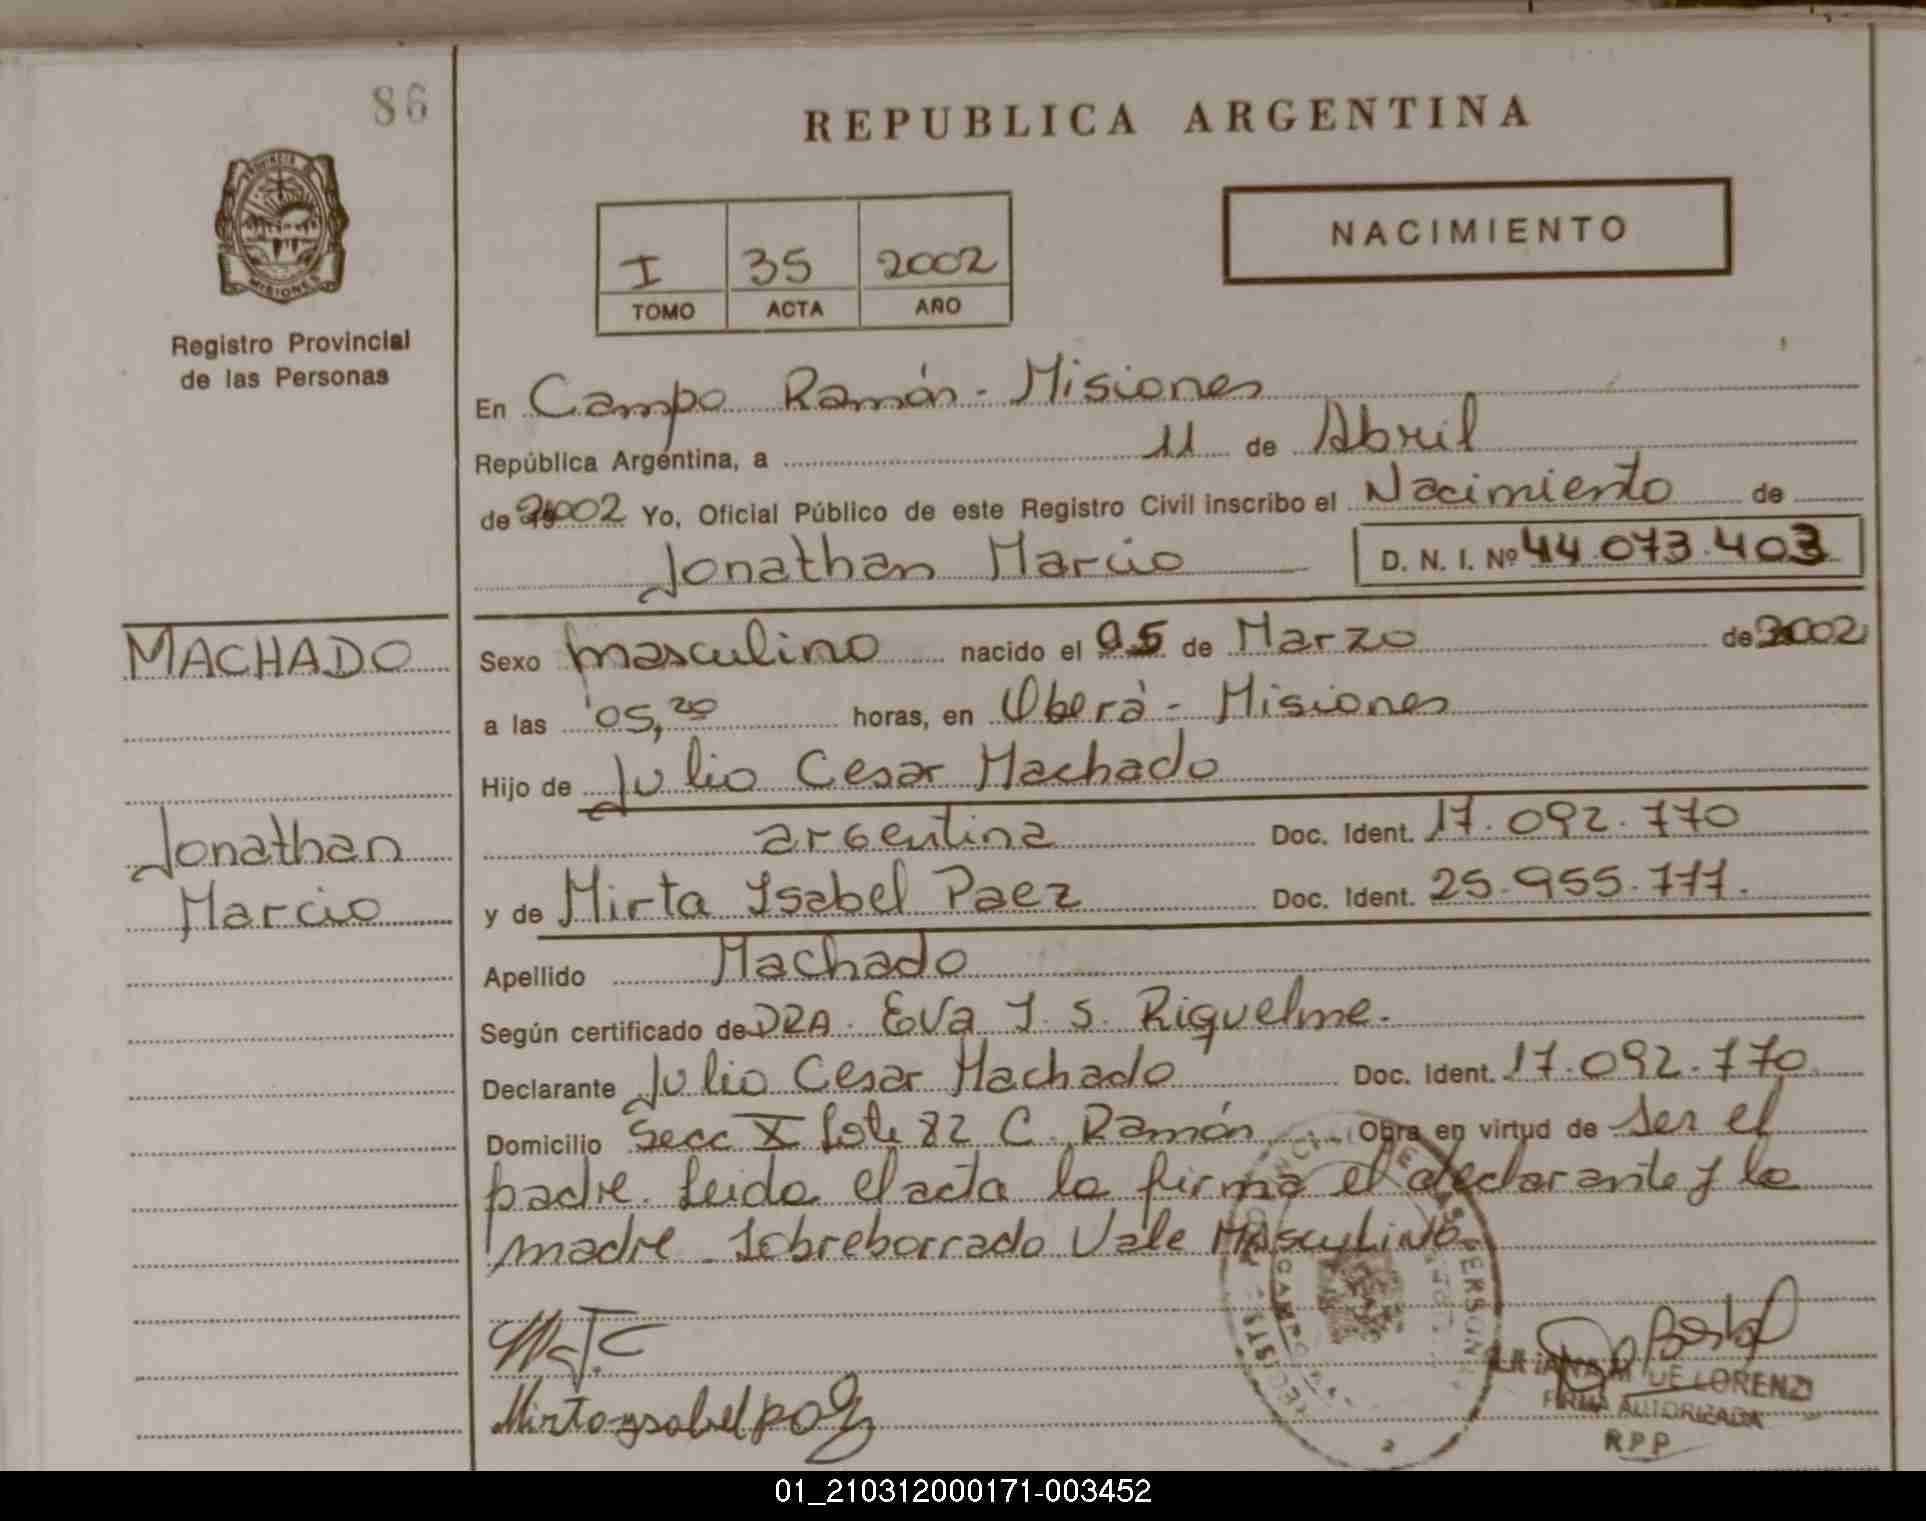 86
REPUBLICA ARGENTINA
PROVINCIA
MISIONES
Registro Provincial
de las Personas
I 35 2002
TOMO ACTA AÑO
NACIMIENTO
En Campo Ramón - Misiones
República Argentina, a 11 de Abril
de 2002 Yo, Oficial Público de este Registro Civil inscribo el Nacimiento de
Jonathan Marcio D. N. I. Nº 44.073.403
MACHADO
Jonathan
Marcio
Sexo masculino nacido el 05 de Marzo de 2002
a las 05,20 horas, en Oberá - Misiones
Hijo de Julio Cesar Machado
argentina Doc. Ident. 17.092.770
y de Mirta Isabel Paez Doc. Ident. 25.955.777.
Apellido Machado
Según certificado de DRA. Eva I. S. Riquelme.
Declarante Julio Cesar Machado Doc. Ident. 17.092.770
Domicilio Secc X Lote 82 C. Ramón Obra en virtud de ser el
padre. Leida el acta la firma el declarante y la
madre. Sobreborrado Vale Masculino
Mirta ysabel paez
DE LORENZI
FIRMA AUTORIZADA
RPP
01_210312000171-003452